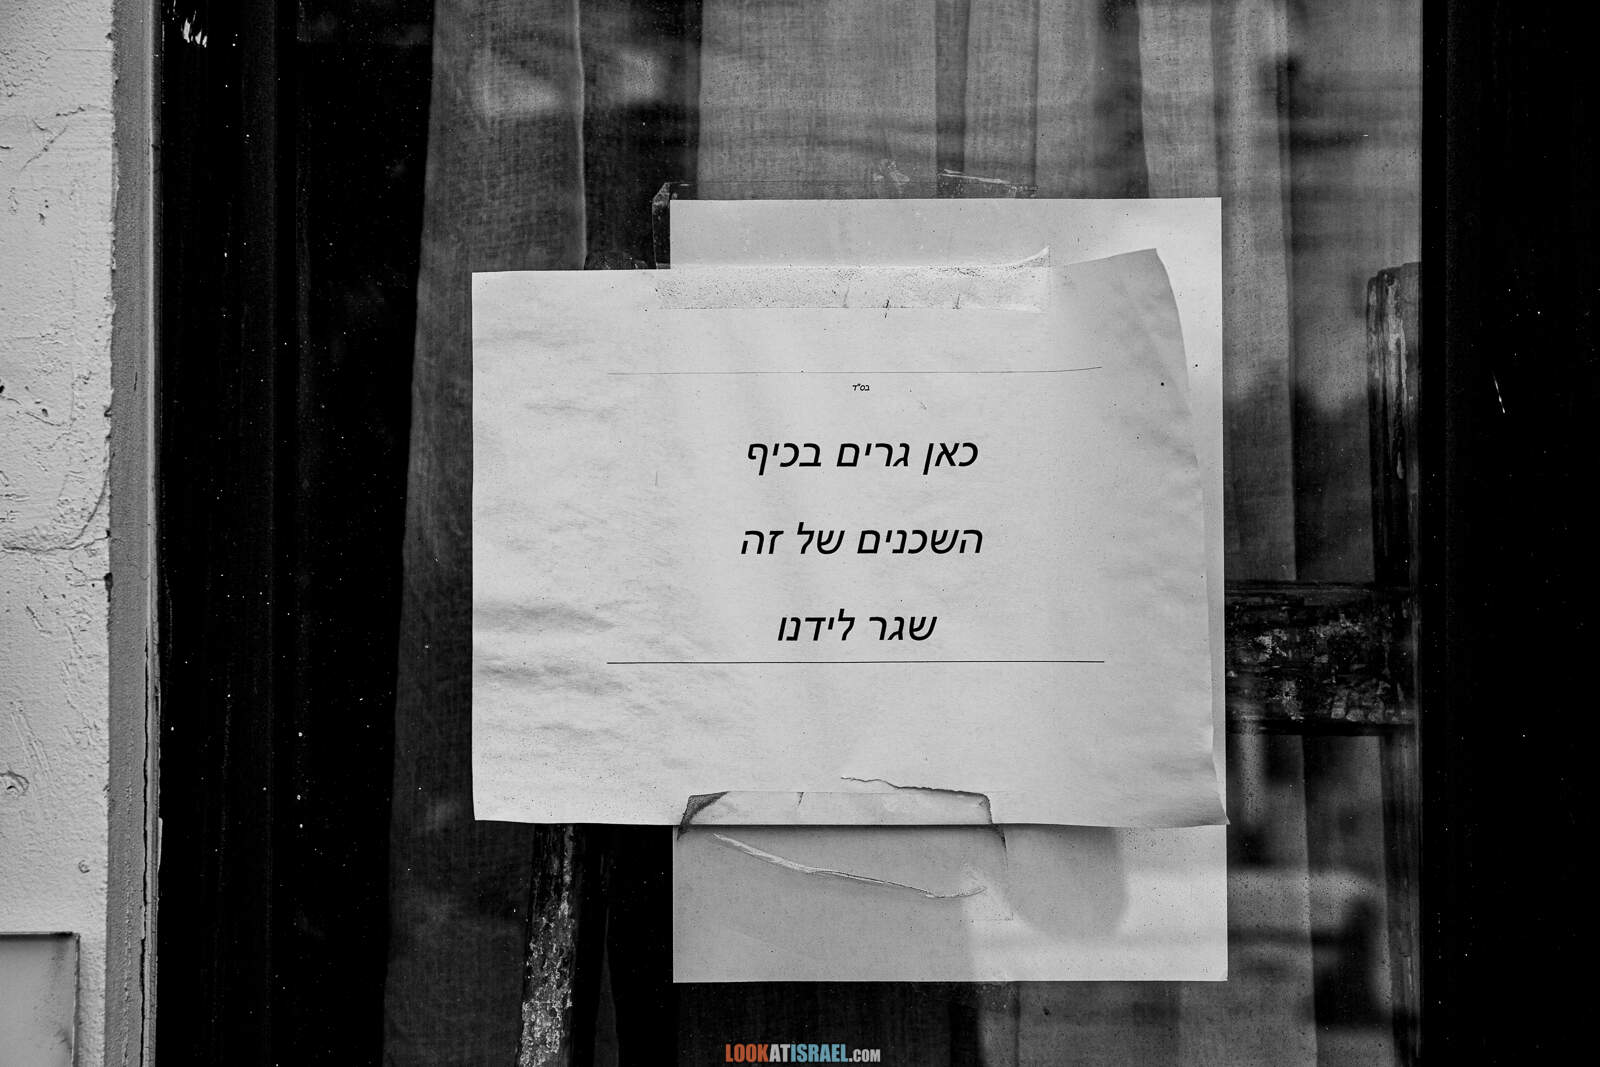 בס"ד
כאן גרים בכיף
השכנים של זה
שגר לידנו
LOOKATISRAEL.COM